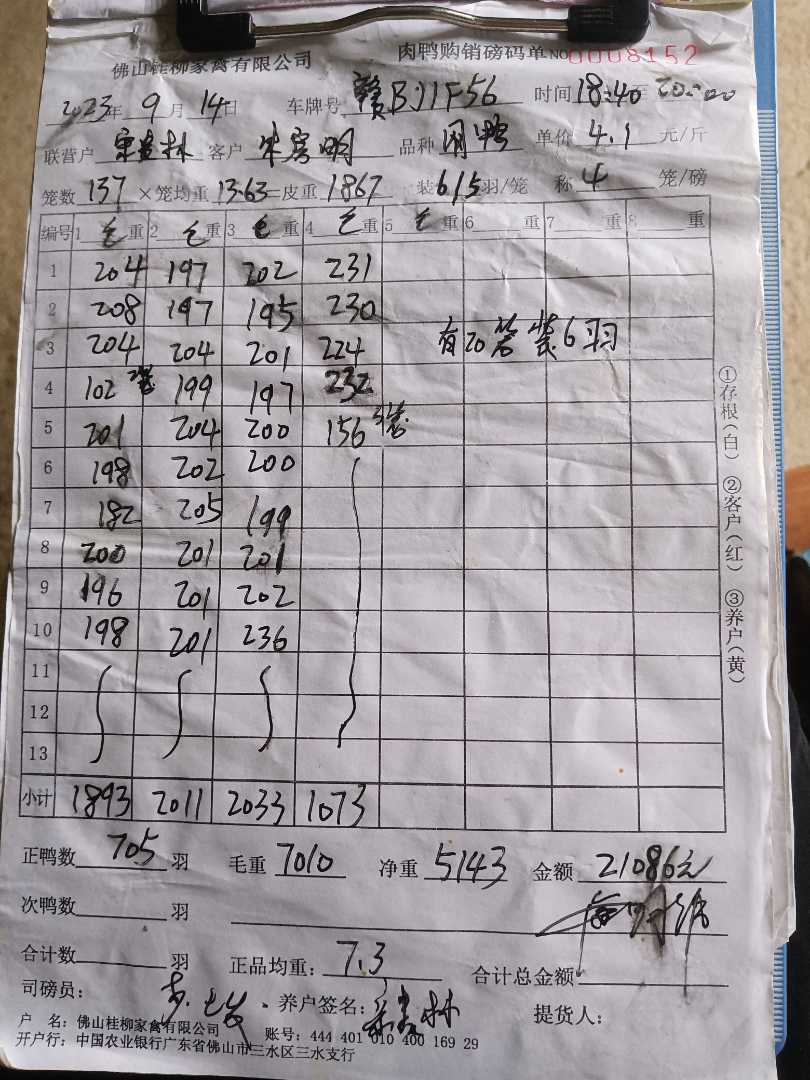 佛山桂柳家禽有限公司 肉鸭购销磅码单 NO 0008152
2023年 9月 14日 车牌号 赣B J1F56 时间 18:40
联营户 客户 明 品种 鸭 单价 4.1 元/斤
笼数 137 ×笼均重 13.63=皮重 1867 装 6/5 羽/笼 称 4 笼/磅
编号 1 毛重 2 毛重 3 毛重 4 毛重 5 毛重 6 重 7 重 8 重
1 204 197 202 231
2 208 197 195 230
3 204 204 201 224 有20笼装6羽
4 102 199 197 232
5 201 204 200 156
6 198 202 200
7 182 205 199
8 200 201 201
9 196 201 202
10 198 201 236
11
12
13
小计 1893 2011 2033 1073
①存根(白) ②客户(红) ③养户(黄)
正鸭数 705 羽 毛重 7010 净重 5143 金额 21086元
次鸭数 羽
合计数 羽 正品均重: 7.3 合计总金额
司磅员: 养户签名: 林 提货人:
户 名: 佛山桂柳家禽有限公司 账号: 444 401 010 400 169 29
开户行: 中国农业银行广东省佛山市三水区三水支行